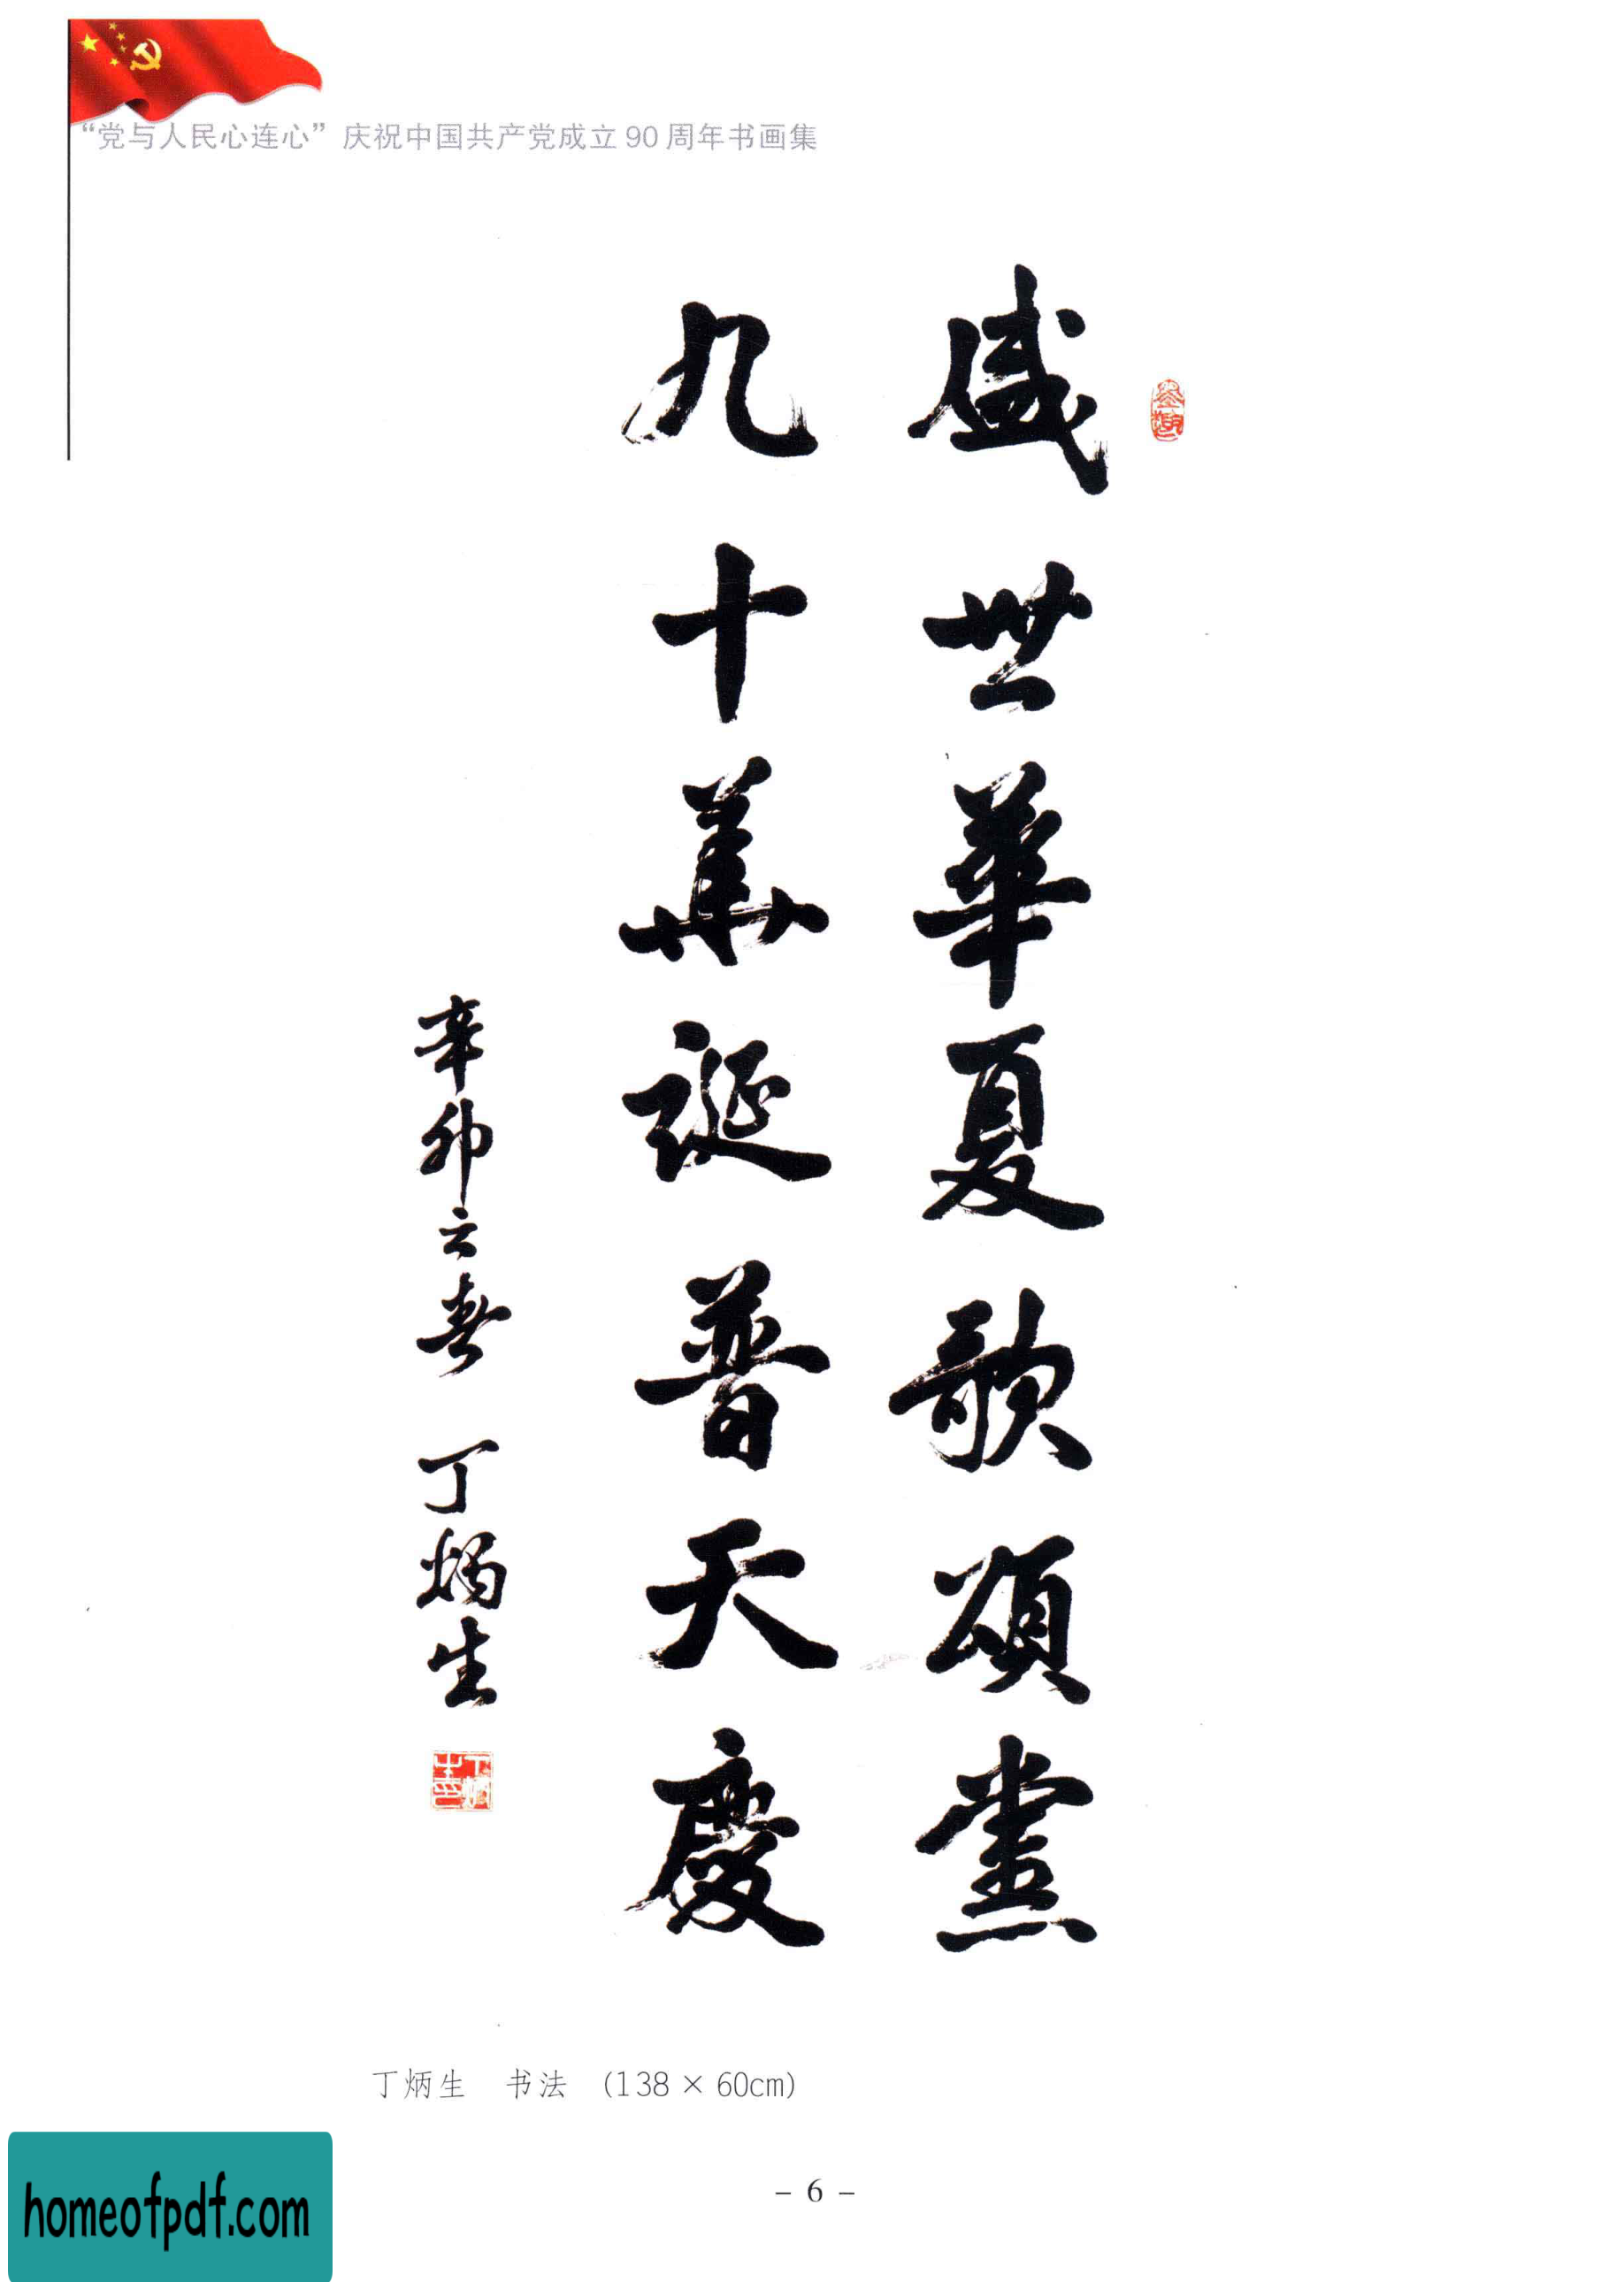 “党与人民心连心”庆祝中国共产党成立90周年书画集
盛世華夏歌頌黨
九十華誕普天慶
辛卯之春 丁炳生
丁炳生 书法 (138×60cm)
- 6 -
homeofpdf.com